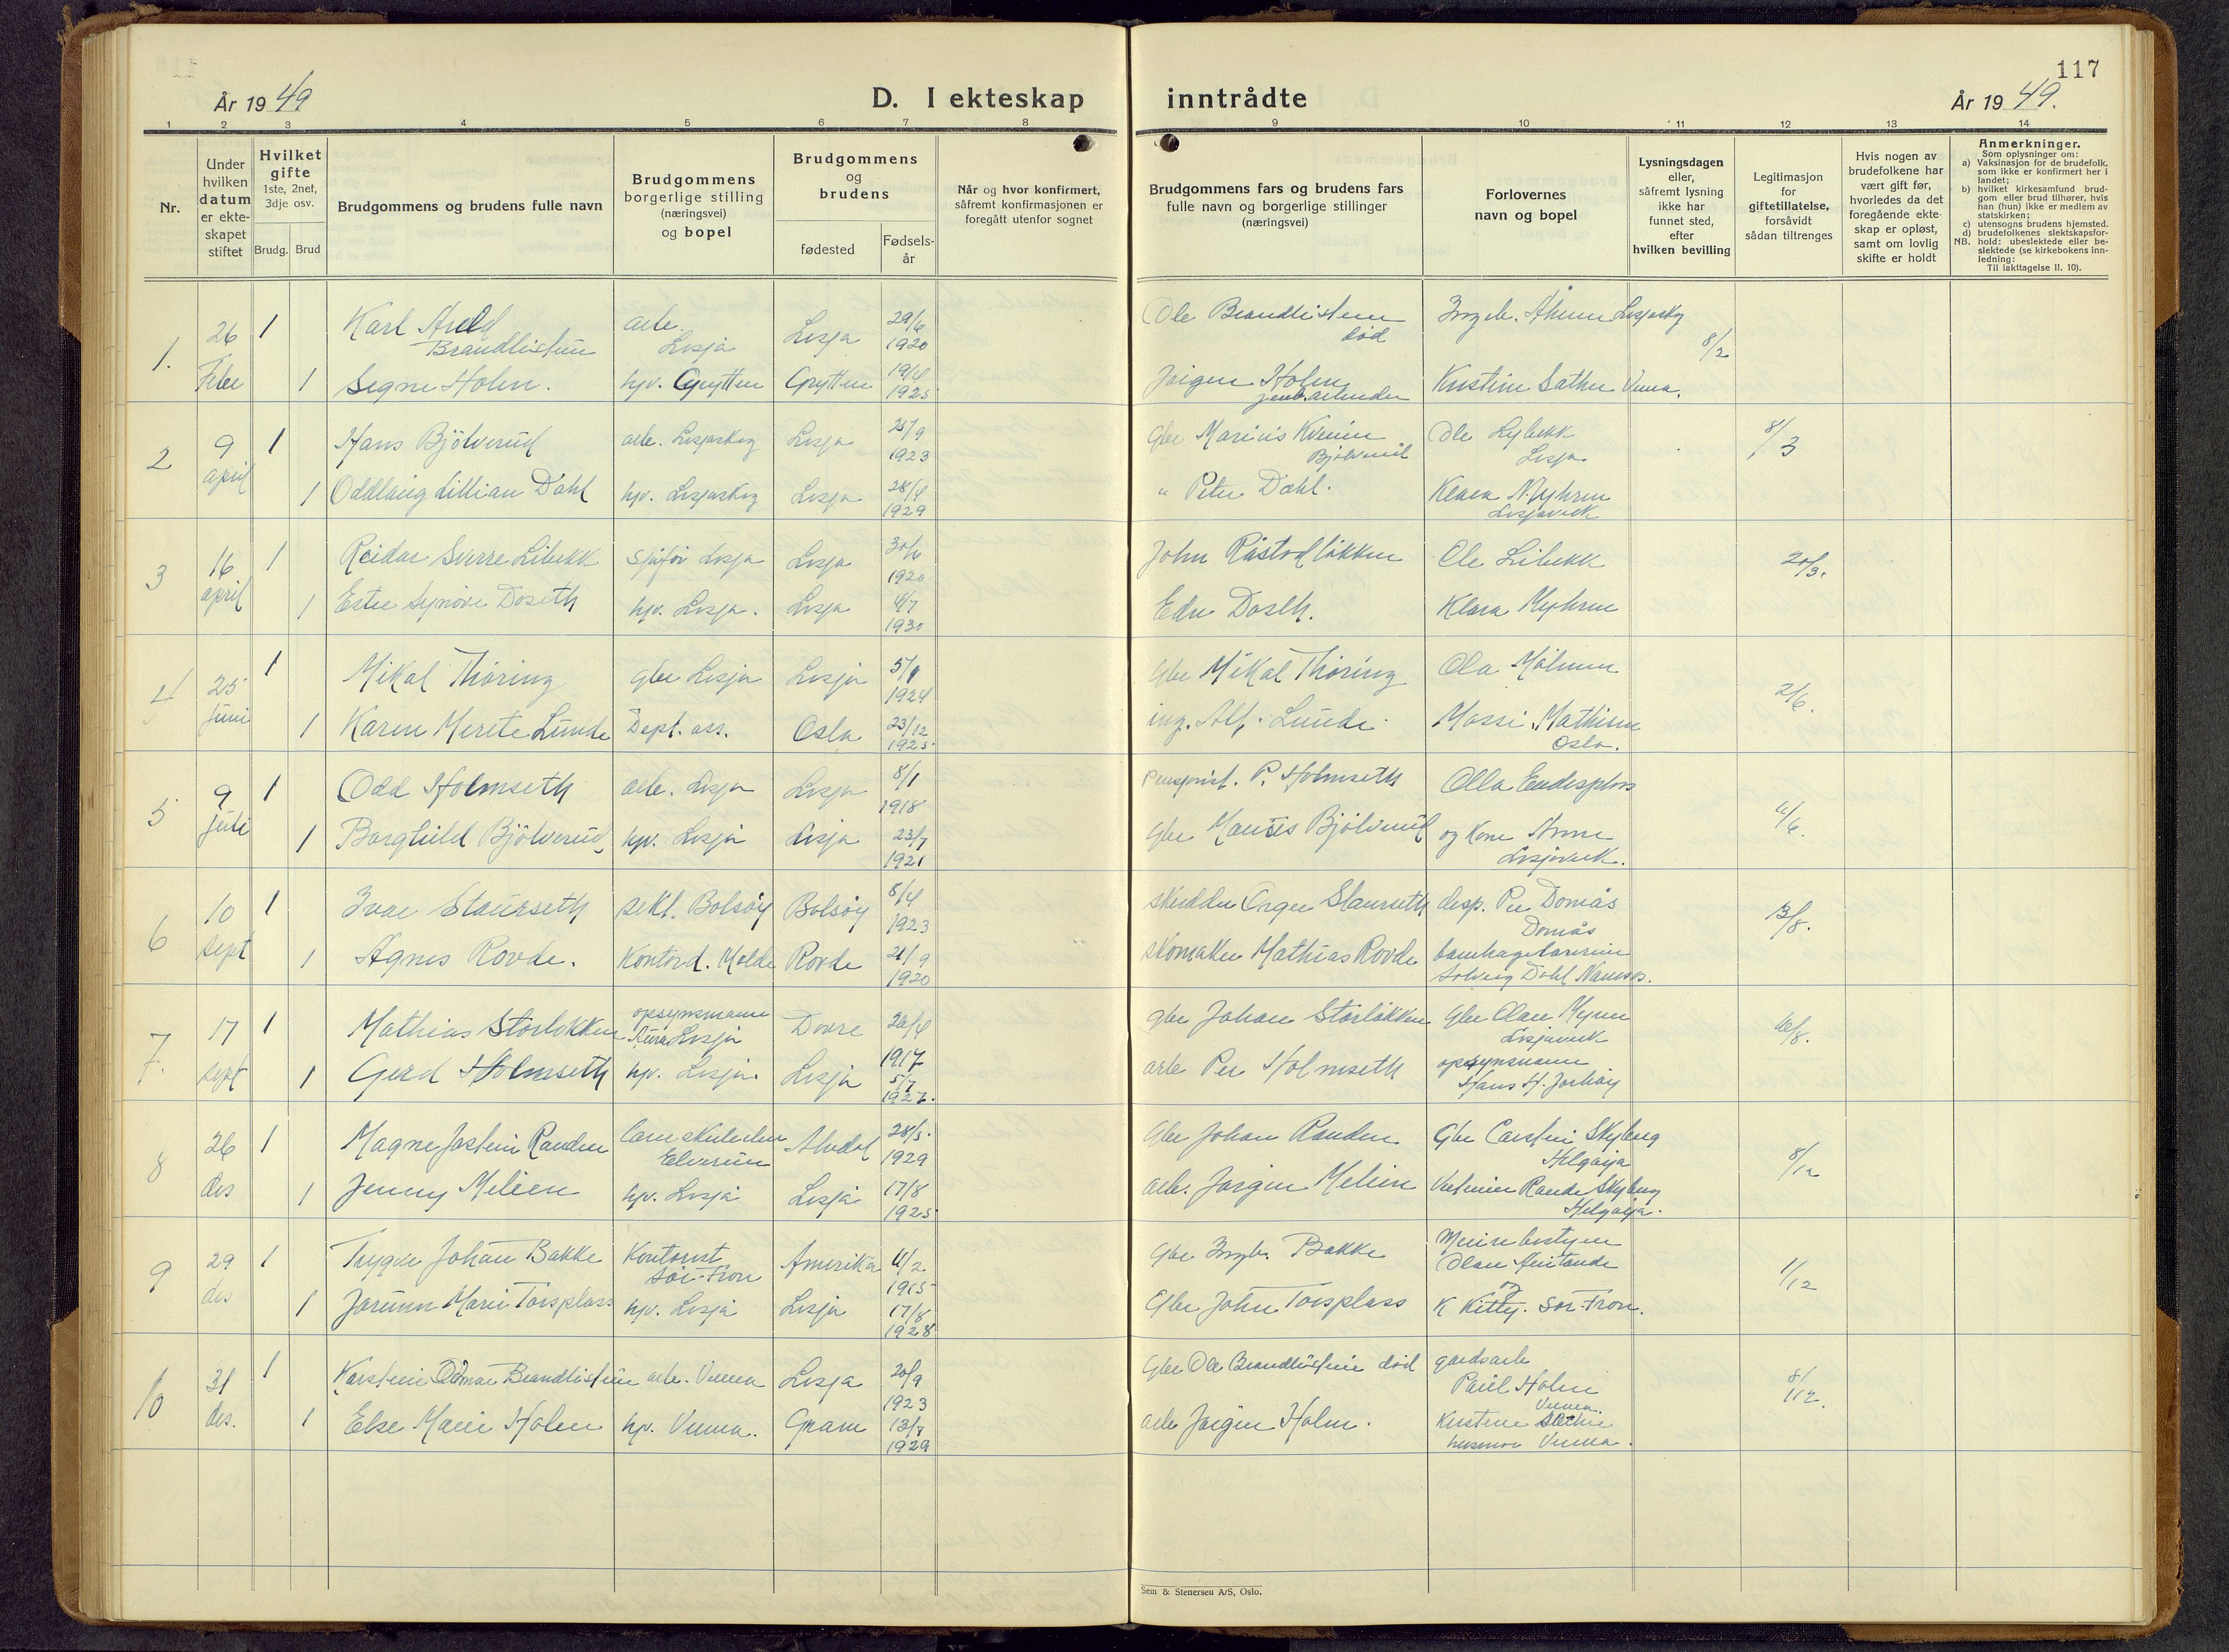 117
År 19 49
D. I ekteskap inntrådte
År 19 49.
1 2 3 4 5 6 7 8 9 10 11 12 13 14
Nr.
Under
hvilken
datum
er ekte-
skapet
stiftet
Hvilket
gifte
1ste, 2net,
3dje osv.
Brudg. Brud
Brudgommens og brudens fulle navn
Brudgommens
borgerlige stilling
(næringsvei)
og bopel
Brudgommens
og
brudens
fødested
Fødsels-
år
Når og hvor konfirmert,
såfremt konfirmasjonen er
foregått utenfor sognet
Brudgommens fars og brudens fars
fulle navn og borgerlige stillinger
(næringsvei)
Forlovernes
navn og bopel
Lysningsdagen
eller,
såfremt lysning
ikke har
funnet sted,
efter
hvilken bevilling
Legitimasjon
for
giftetillatelse,
forsåvidt
sådan tiltrenges
Hvis nogen av
brudefolkene har
vært gift før,
hvorledes da det
foregående ekte-
skap er opløst,
samt om lovlig
skifte er holdt
Anmerkninger.
Som oplysninger om:
a) Vaksinasjon for de brudefolk,
som ikke er konfirmert her i
landet;
b) hvilket kirkesamfund brud-
gom eller brud tilhører, hvis
han (hun) ikke er medlem av
statskirken;
c) utensogns brudens hjemsted.
d) brudefolkenes slektskapsfor-
NB. hold: ubeslektede eller be-
slektede (se kirkebokens inn-
ledning:
Til iakttagelse II. 10).
1. 26 Febr 1 Karl Arild
Brandlistuen arb.
Lesja Lesja 29/6
1920 Ole Brandlistuen
død Ingeb. Åhmen Lesjaskg 8/2
1 Segne Holen. hjv. Grytten Grytten 19/4
1925 Jørgen Holen
jernb.arbeider Kristine Sathe Verma.
2 9 april 1 Hans Bjölverud arb. Lesjaskog Lesja 25/9
1923 Gbr Marius Kvenn
Bjölverud Ole Lybekk
Lesja 8/3
1 Oddlaug Lillian Dahl hjv. Lesjaskog Lesja 28/4
1929 " Peter Dahl. Klara Myhren
Lesjaverk
3 16 april 1 Reidar Sverre Libekk Sjåför Lesja Lesja 30/6
1920 John Råstadløkken Ole Libekk 20/3.
1 Ester Synöve Doseth hjv. Lesja. Lesja 4/7
1930 Edv Doseth. Klara Myhren
4 25 juni 1 Mikal Thöring gbr Lesja Lesja 5/1
1924 Gbr Mikal Thöring Ola Mölmen 2/6.
1 Karen Merete Lunde Dept. ass. Oslo 23/12
1925 ing. Alf. Lunde. Mossi Mathisen
Oslo.
5 9 juli 1 Odd Holmseth arb. Lesja Lesja 8/1
1918 Pensjonist. P. Holmseth Olla Endesplass
1 Borghild Bjölverud hjv. Lesja Lesja 23/7
1921 Gbr Marius Bjölverud og Kone Anne
Lesjaverk.
6 10 sept 1 Ivar Staurseth sekt. Bolsöy Bolsöy 8/4
1923 skredder Staurseth desp. Per Domås
Domås 13/8.
1 Agnes Rovde. Kontord. Molde Rovde 21/9
1920 skomaker Mathias Rovde barnhagelærerinne
Solveig Dahl Namsos.
7. 17 sept 1 Mathias Storlökken opsynsmann
Aura Lesja Dovre 20/4
1917 gbr Johan Storlökken Gbr Olav Mynn
Lesjaverk
1 Gerd Holmseth hjv. Lesja. Lesja 5/7
1927. arb Per Holmseth opsynsmann
Hans H. Jorhöy
8 26 des 1 Magne Jostein Randen
Elverum Alvdal 28/5.
1929 Gbr Johan Randen. Gbr Carsten Skyberg
Helgöya 8/12
1 Jenny Melien hjv. Lesja Lesja 17/8
1925 arb. Jørgen Melien Randi Skyberg
Helgöya.
9 29 des 1 Trygve Johan Bakke Kontorist
Sör-Fron Amerika 11/2
1915 Gbr Ingb. Bakke Meieribestyrer
Olav 1/12
1 Jorunn Marie Torsplass hjv. Lesja Lesja 17/8
1928 Gbr John Torsplass og
K Kitty. Sör-Fron.
10 31 des. 1 Karstein Odmar Brandlistuen arb. Verma Lesja 20/9
1923 Gbr Ole Brandlistuen död gardsarb
Paul Holen
Verma. 8/12.
1 Else Marie Holen hjv. Verma. Gram 13/7
1929 arb Jørgen Holm. Kristine Sæther
husmor Verma.
Sem & Stenersen A/S, Oslo.